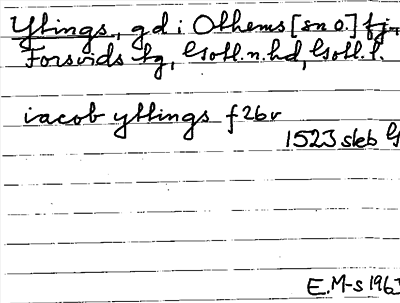 Yttings, gd i Othems [sn o.] fj.,
Forsvids tg, Gotl.n.hd, Gotl.l.
iacob yttings f 26v
1523 skb G
E.M-s 1963